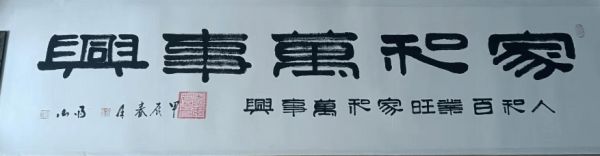 家和萬事興
人和百業旺家和萬事興
甲辰春月